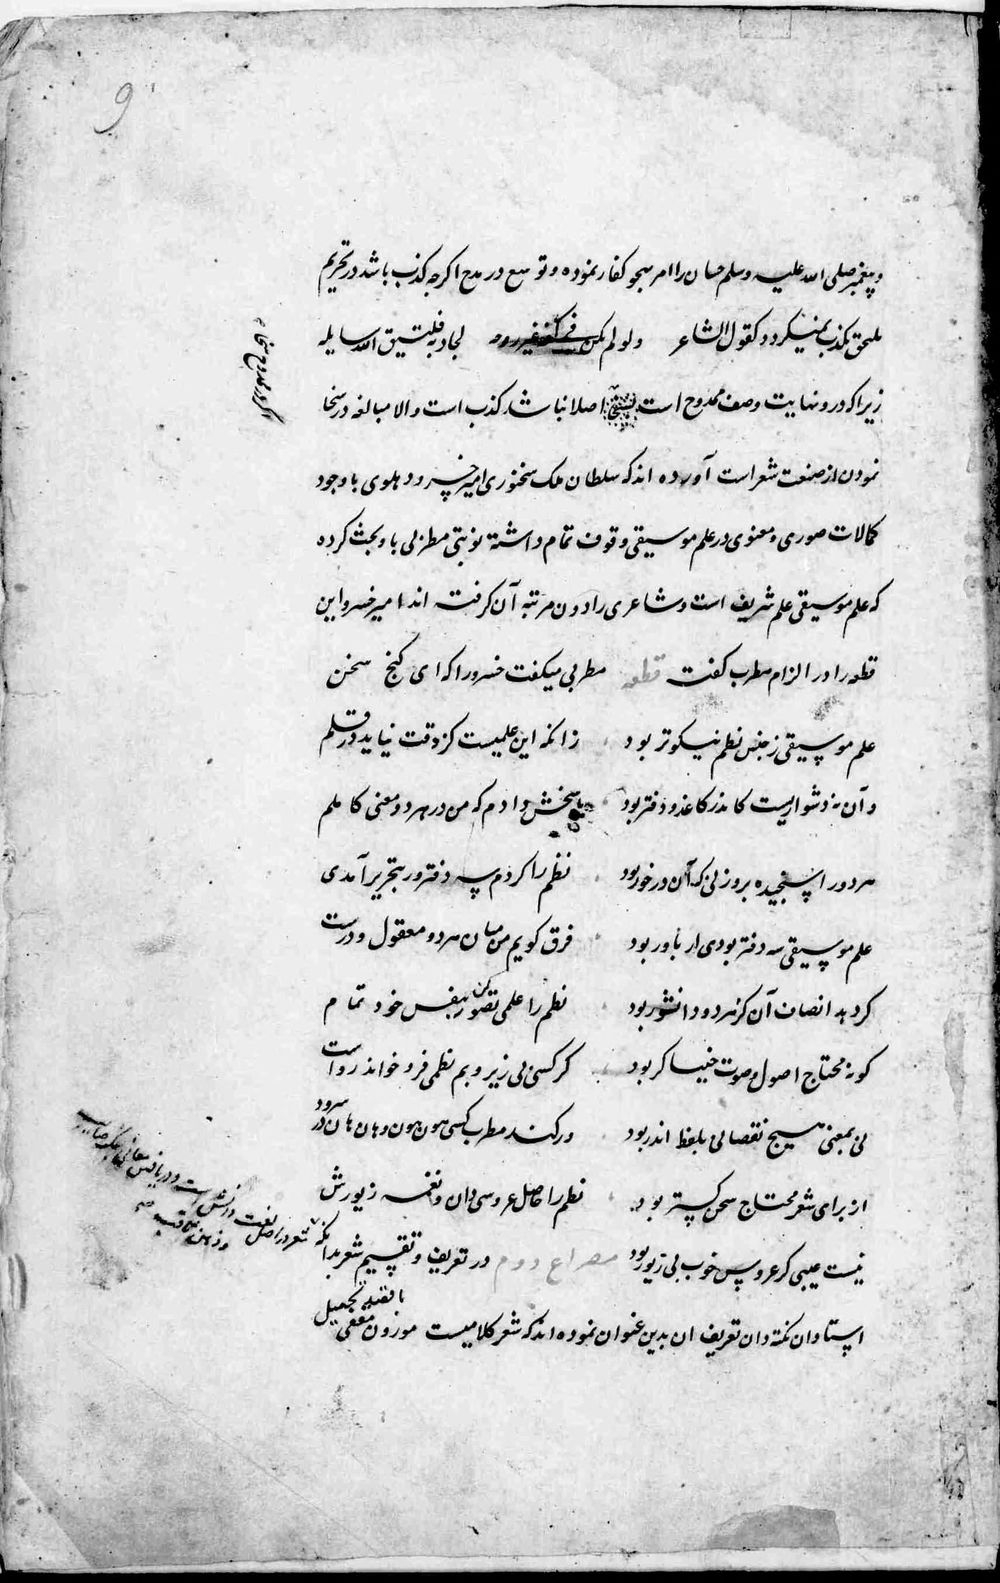 و پیغمبر صلی الله علیه وسلم حسان را امر بهجو کفار نموده و توسع در مدح اکرچه کذب باشد در تحریم
ملحق بکذب نمیکردد کقول الشاعر ولو لم یکن فی کفه غیر روحه لجاد بها فلیتق الله سایله
زیرا که در و نهایت وصف ممدوح است بسخا اصلا نباشد کذب است والا مبالغه در سخا
نمودن از صنعت شعر است آورده اند که سلطان ملک سخنوری امیر خسرو دهلوی با وجود
کمالات صوری و معنوی در علم موسیقی وقوف تمام داشته نوبتی مطربی با و بحث کرده
که علم موسیقی علم شریف است و شاعری را دون مرتبه آن کرفته اند امیر خسرو این
قطعه را در الزام مطرب کفت قطعه مطربی میکفت خسرو را که ای کنج سخن
علم موسیقی ز جنس نظم نیکوتر بود زانکه این علمیست کز دقت نیاید در قلم
و آن نه دشواریست کاندر کاغذ و دفتر بود پاسخش دادم که من در هر دو معنی کاملم
هر دو را سنجیده بر وزنی که آن در خور بود نظم را کردم سه دفتر ور بتحریر آمدی
علم موسیقی سه دفتر بودی ار باور بود فرق کویم من میان هر دو معقول و درست
کر دهد انصاف آن کز هر دو دانشور بود نظم را علمی تصور کن بنفس خود تمام
کو نه محتاج اصول و صوت خنیاکر بود کر کسی بی زیر و بم نظمی فرو خواند رواست
نی بمعنی هیچ نقصان نی بلفظ اندر بود ور کند مطرب بسی هون هون و هان هان در سرود
از برای شعر محتاج سخن کستر بود نظم را حاصل عروسی دان و نغمه زیورش
نیست عیبی کر عروس خوب بی زیور بود مصراع دوم در تعریف و تقسیم شعر بدانکه
استادان نکته دان تعریف ان بدین عنوان نموده اند که شعر کلامیست موزون مقفی
شعر در اصل لغت دانش است و دریافتن معانی